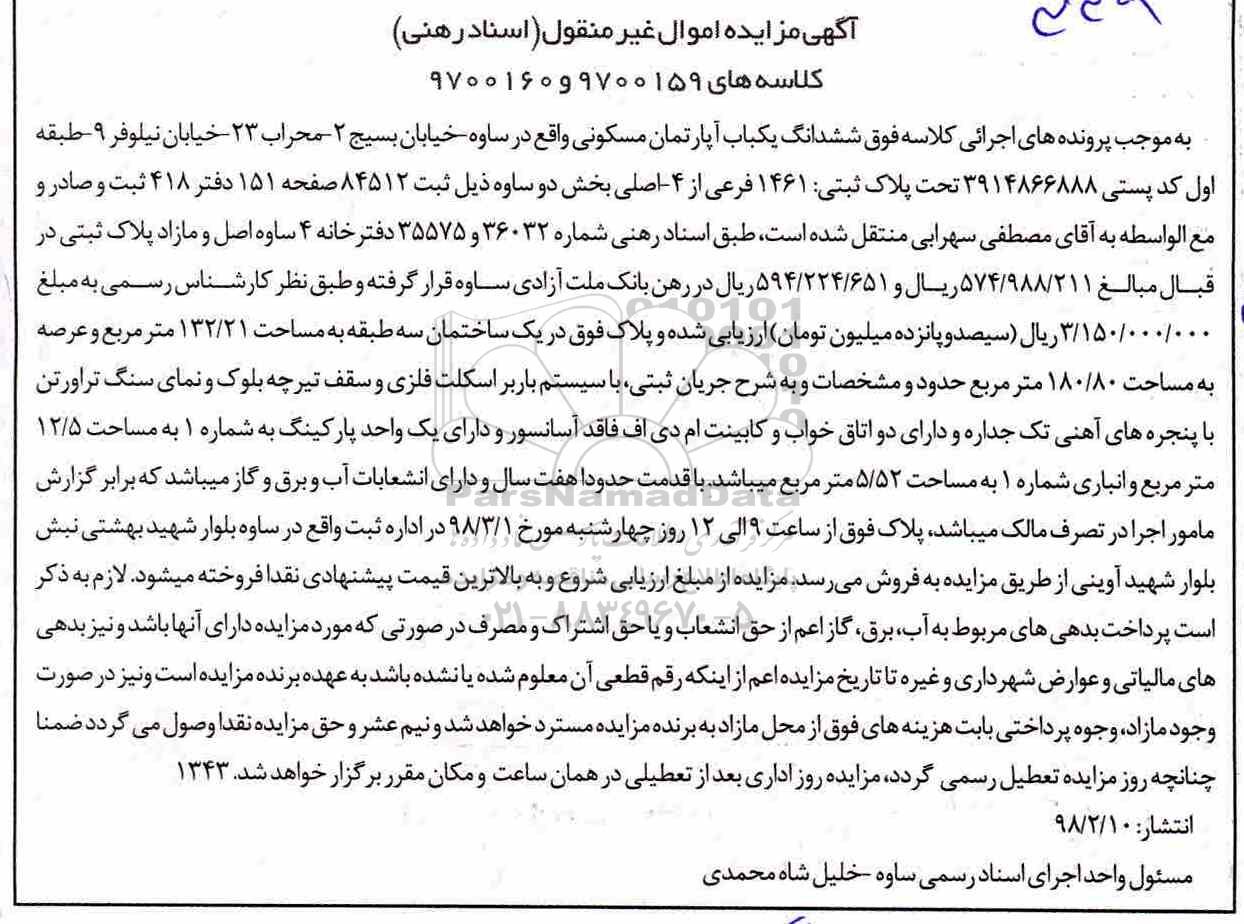 آگهی مزایده اموال غیر منقول (اسناد رهنی)
کلاسه های ۹۷۰۰۱۵۹ و ۹۷۰۰۱۶۰
به موجب پرونده های اجرائی کلاسه فوق ششدانگ یکباب آپارتمان مسکونی واقع در ساوه-خیابان بسیج ۲-محراب ۲۳-خیابان نیلوفر ۹-طبقه
اول کد پستی ۳۹۱۴۸۶۶۸۸۸ تحت پلاک ثبتی: ۱۴۶۱ فرعی از ۴-اصلی بخش دو ساوه ذیل ثبت ۸۴۵۱۲ صفحه ۱۵۱ دفتر ۴۱۸ ثبت و صادر و
مع الواسطه به آقای مصطفی سهرابی منتقل شده است، طبق اسناد رهنی شماره ۳۶۰۳۲ و ۳۵۵۷۵ دفترخانه ۴ ساوه اصل و مازاد پلاک ثبتی در
قبال مبالغ ۵۷۴/۹۸۸/۲۱۱ ریال و ۵۹۴/۲۲۴/۶۵۱ ریال در رهن بانک ملت آزادی ساوه قرار گرفته و طبق نظر کارشناس رسمی به مبلغ
۳/۱۵۰/۰۰۰/۰۰۰ ریال (سیصدو پانزده میلیون تومان) ارزیابی شده و پلاک فوق در یک ساختمان سه طبقه به مساحت ۱۳۲/۲۱ متر مربع و عرصه
به مساحت ۱۸۰/۸۰ متر مربع حدود و مشخصات و به شرح جریان ثبتی، با سیستم باربر اسکلت فلزی و سقف تیرچه بلوک و نمای سنگ تراورتن
با پنجره های آهنی تک جداره و دارای دو اتاق خواب و کابینت ام دی اف فاقد آسانسور و دارای یک واحد پارکینگ به شماره ۱ به مساحت ۱۲/۵
متر مربع و انباری شماره ۱ به مساحت ۵/۵۲ متر مربع میباشد. با قدمت حدودا هفت سال و دارای انشعابات آب و برق و گاز میباشد که برابر گزارش
مامور اجرا در تصرف مالک میباشد، پلاک فوق از ساعت ۹ الی ۱۲ روز چهارشنبه مورخ ۹۸/۳/۱ در اداره ثبت واقع در ساوه بلوار شهید بهشتی نبش
بلوار شهید آوینی از طریق مزایده به فروش می رسد. مزایده از مبلغ ارزیابی شروع و به بالاترین قیمت پیشنهادی نقدا فروخته میشود. لازم به ذکر
است پرداخت بدهی های مربوط به آب، برق، گاز اعم از حق انشعاب و یا حق اشتراک و مصرف در صورتی که مورد مزایده دارای آنها باشد و نیز بدهی
های مالیاتی و عوارض شهرداری و غیره تا تاریخ مزایده اعم از اینکه رقم قطعی آن معلوم شده یا نشده باشد به عهده برنده مزایده است ونیز در صورت
وجود مازاد، وجوه پرداختی بابت هزینه های فوق از محل مازاد به برنده مزایده مسترد خواهد شد و نیم عشر و حق مزایده نقدا وصول می گردد ضمنا
چنانچه روز مزایده تعطیل رسمی گردد، مزایده روز اداری بعد از تعطیلی در همان ساعت و مکان مقرر برگزار خواهد شد. ۱۳۴۳
انتشار: ۹۸/۲/۱۰
مسئول واحد اجرای اسناد رسمی ساوه -خلیل شاه محمدی
ParsNamadData
۰۲۱-۸۸۳۴۹۶۷۰-۵